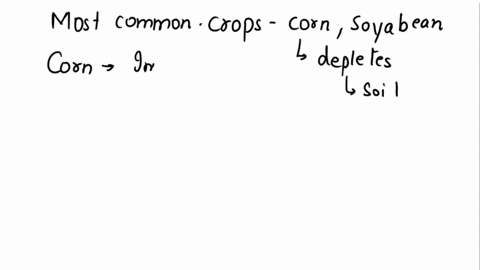 Most common. crops - corn, Soyabean
↳ depletes
Corn → In
↳ soil